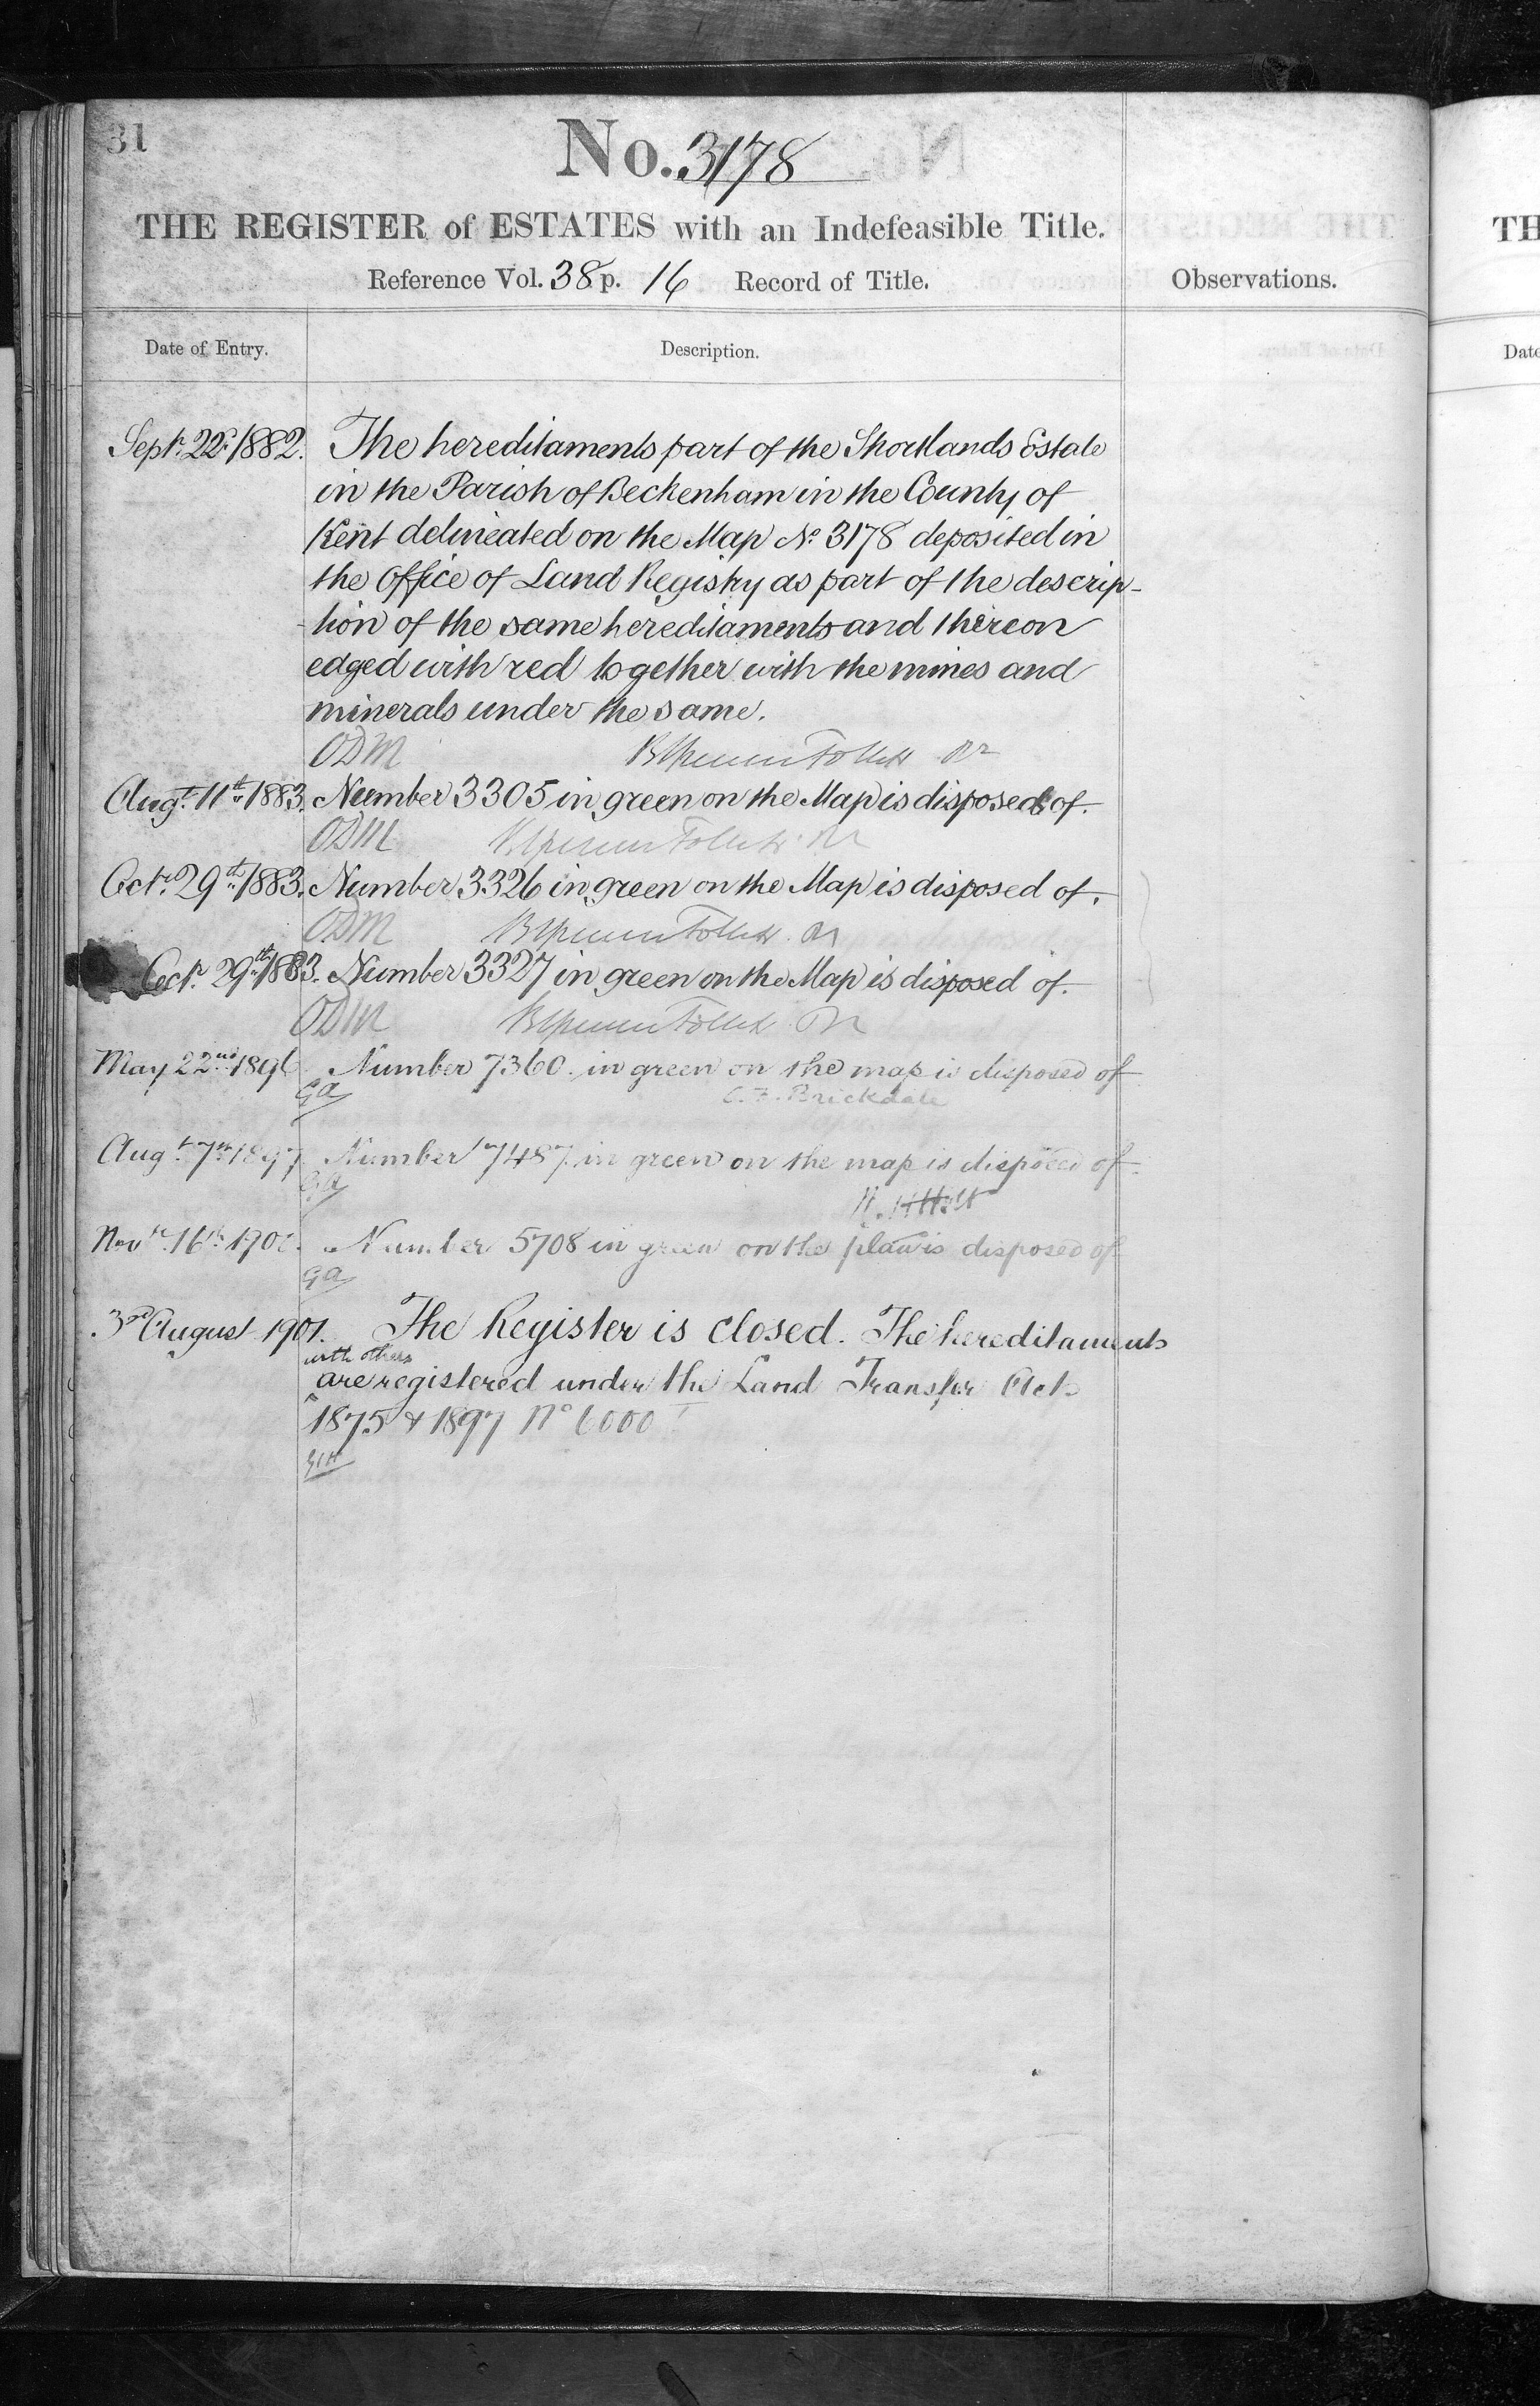 31
No. 3178
THE REGISTER of ESTATES with an Indefeasible Title.
Reference Vol. 38 p. 16 Record of Title.
Observations.
Date of Entry.
Description.
Septr. 22d. 1882. The hereditaments part of the Shortlands Estate
in the Parish of Beckenham in the County of
Kent delineated on the Map No. 3178 deposited in
the Office of Land Registry as part of the descrip-
-tion of the same hereditaments and thereon
edged with red together with the mines and
minerals under the same.
ODM
Augt. 11th. 1883. Number 3305 in green on the Map is disposed of.
ODM
Octr. 29th. 1883. Number 3326 in green on the Map is disposed of.
ODM
Octr. 29th. 1883. Number 3327 in green on the Map is disposed of.
ODM
May 22nd 1896 Number 7360 in green on the map is disposed of
Ga C. F. Brickdale
Augt. 7th 1897 Number 7487 in green on the map is disposed of
Ga
Novr. 16th Number 5708 in green on the plan is disposed of
Ga
3rd August 1901. The Register is closed. The hereditaments
with others
are registered under the Land Transfer Acts
1875 & 1897 No 6000
TH
Date